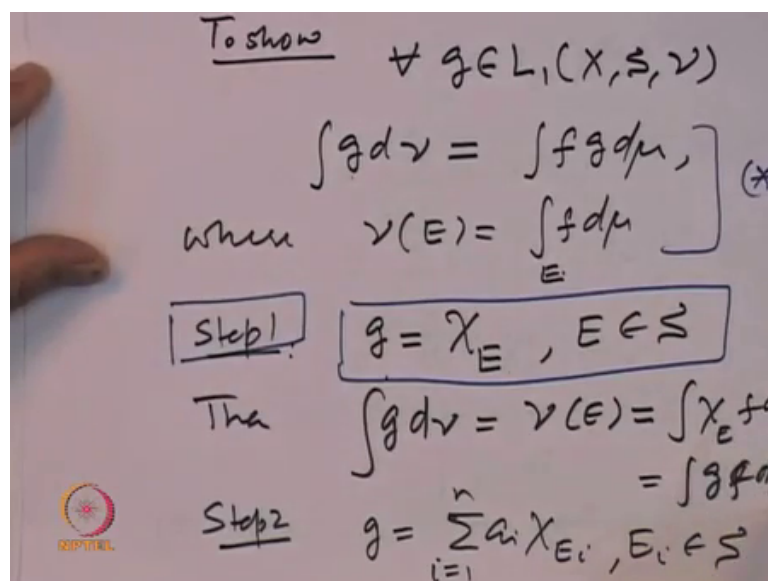 To show ∀ g ∈ L₁(X, S, ν)
∫ g dν = ∫ f g dμ,
(*
where ν(E) = ∫_E f dμ
Step 1. g = χ_E , E ∈ S
The ∫ g dν = ν(E) = ∫ χ_E f
= ∫ g f d
Step 2 g = ∑_{i=1}^{n} a_i χ_{E_i} , E_i ∈ S
NPTEL